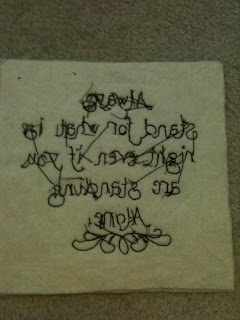 Always
stand for what is
right, even if you
are standing
Alone.